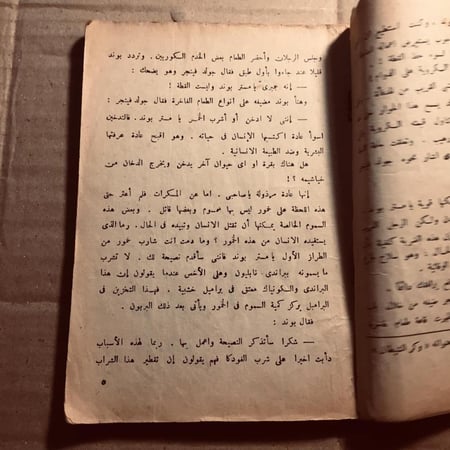 وجلس الرجلان وأحضر الطعام بعض الخدم السكوريين. وتردد بوند
قليلا عند جاءوا بأول طبق فقال جولد فينجر وهو يضحك :
— إنه جمبرى يا مستر بوند وليست القطة !
وهنأ بوند مضيفه على انواع الطعام الفاخرة فقال جولد فينجر :
— إننى لا ادخن أو أشرب الخمر يا مستر بوند . فالتدخين
اسوأ عادة اكتسبها الإنسان فى حياته . وهو اقبح عادة عرفتها
البشرية وضد الطبيعة الانسانية .
هل هناك بقرة او اى حيوان آخر يدخن ويخرج الدخان من
خياشيمه ؟!
إنها عادة مرذولة ياصاحبى . اما عن المسكرات فلم أعثر حتى
هذه اللحظة على خمور ليس بها سموم وبعضها قاتل . وبعض هذه
السموم الخالصة يمكنها أن تقتل الانسان وتبيده فى الحال . وما الذى
يستفيده الانسان من هذه الخمور ؟ وما دمت انت شارب خمور من
الطراز الأول يا مستر بوند فاننى سأقدم نصيحة لك . لا تشرب
ما يسمونه ببراندى نابليون وعلى الأخص عندما يقولون إن هذا
البراندى والكونياك معتق فى براميل خشبية . فهذا التخزين فى
البراميل يركز كمية السموم فى الخمور ويأتى بعد ذلك البربون .
فقال بوند :
— شكرا سأتذكر النصيحة واعمل بها . ربما لهذه الأسباب
دأبت اخيرا على شرب الفودكا فهم يقولون إن تقطير هذا الشراب